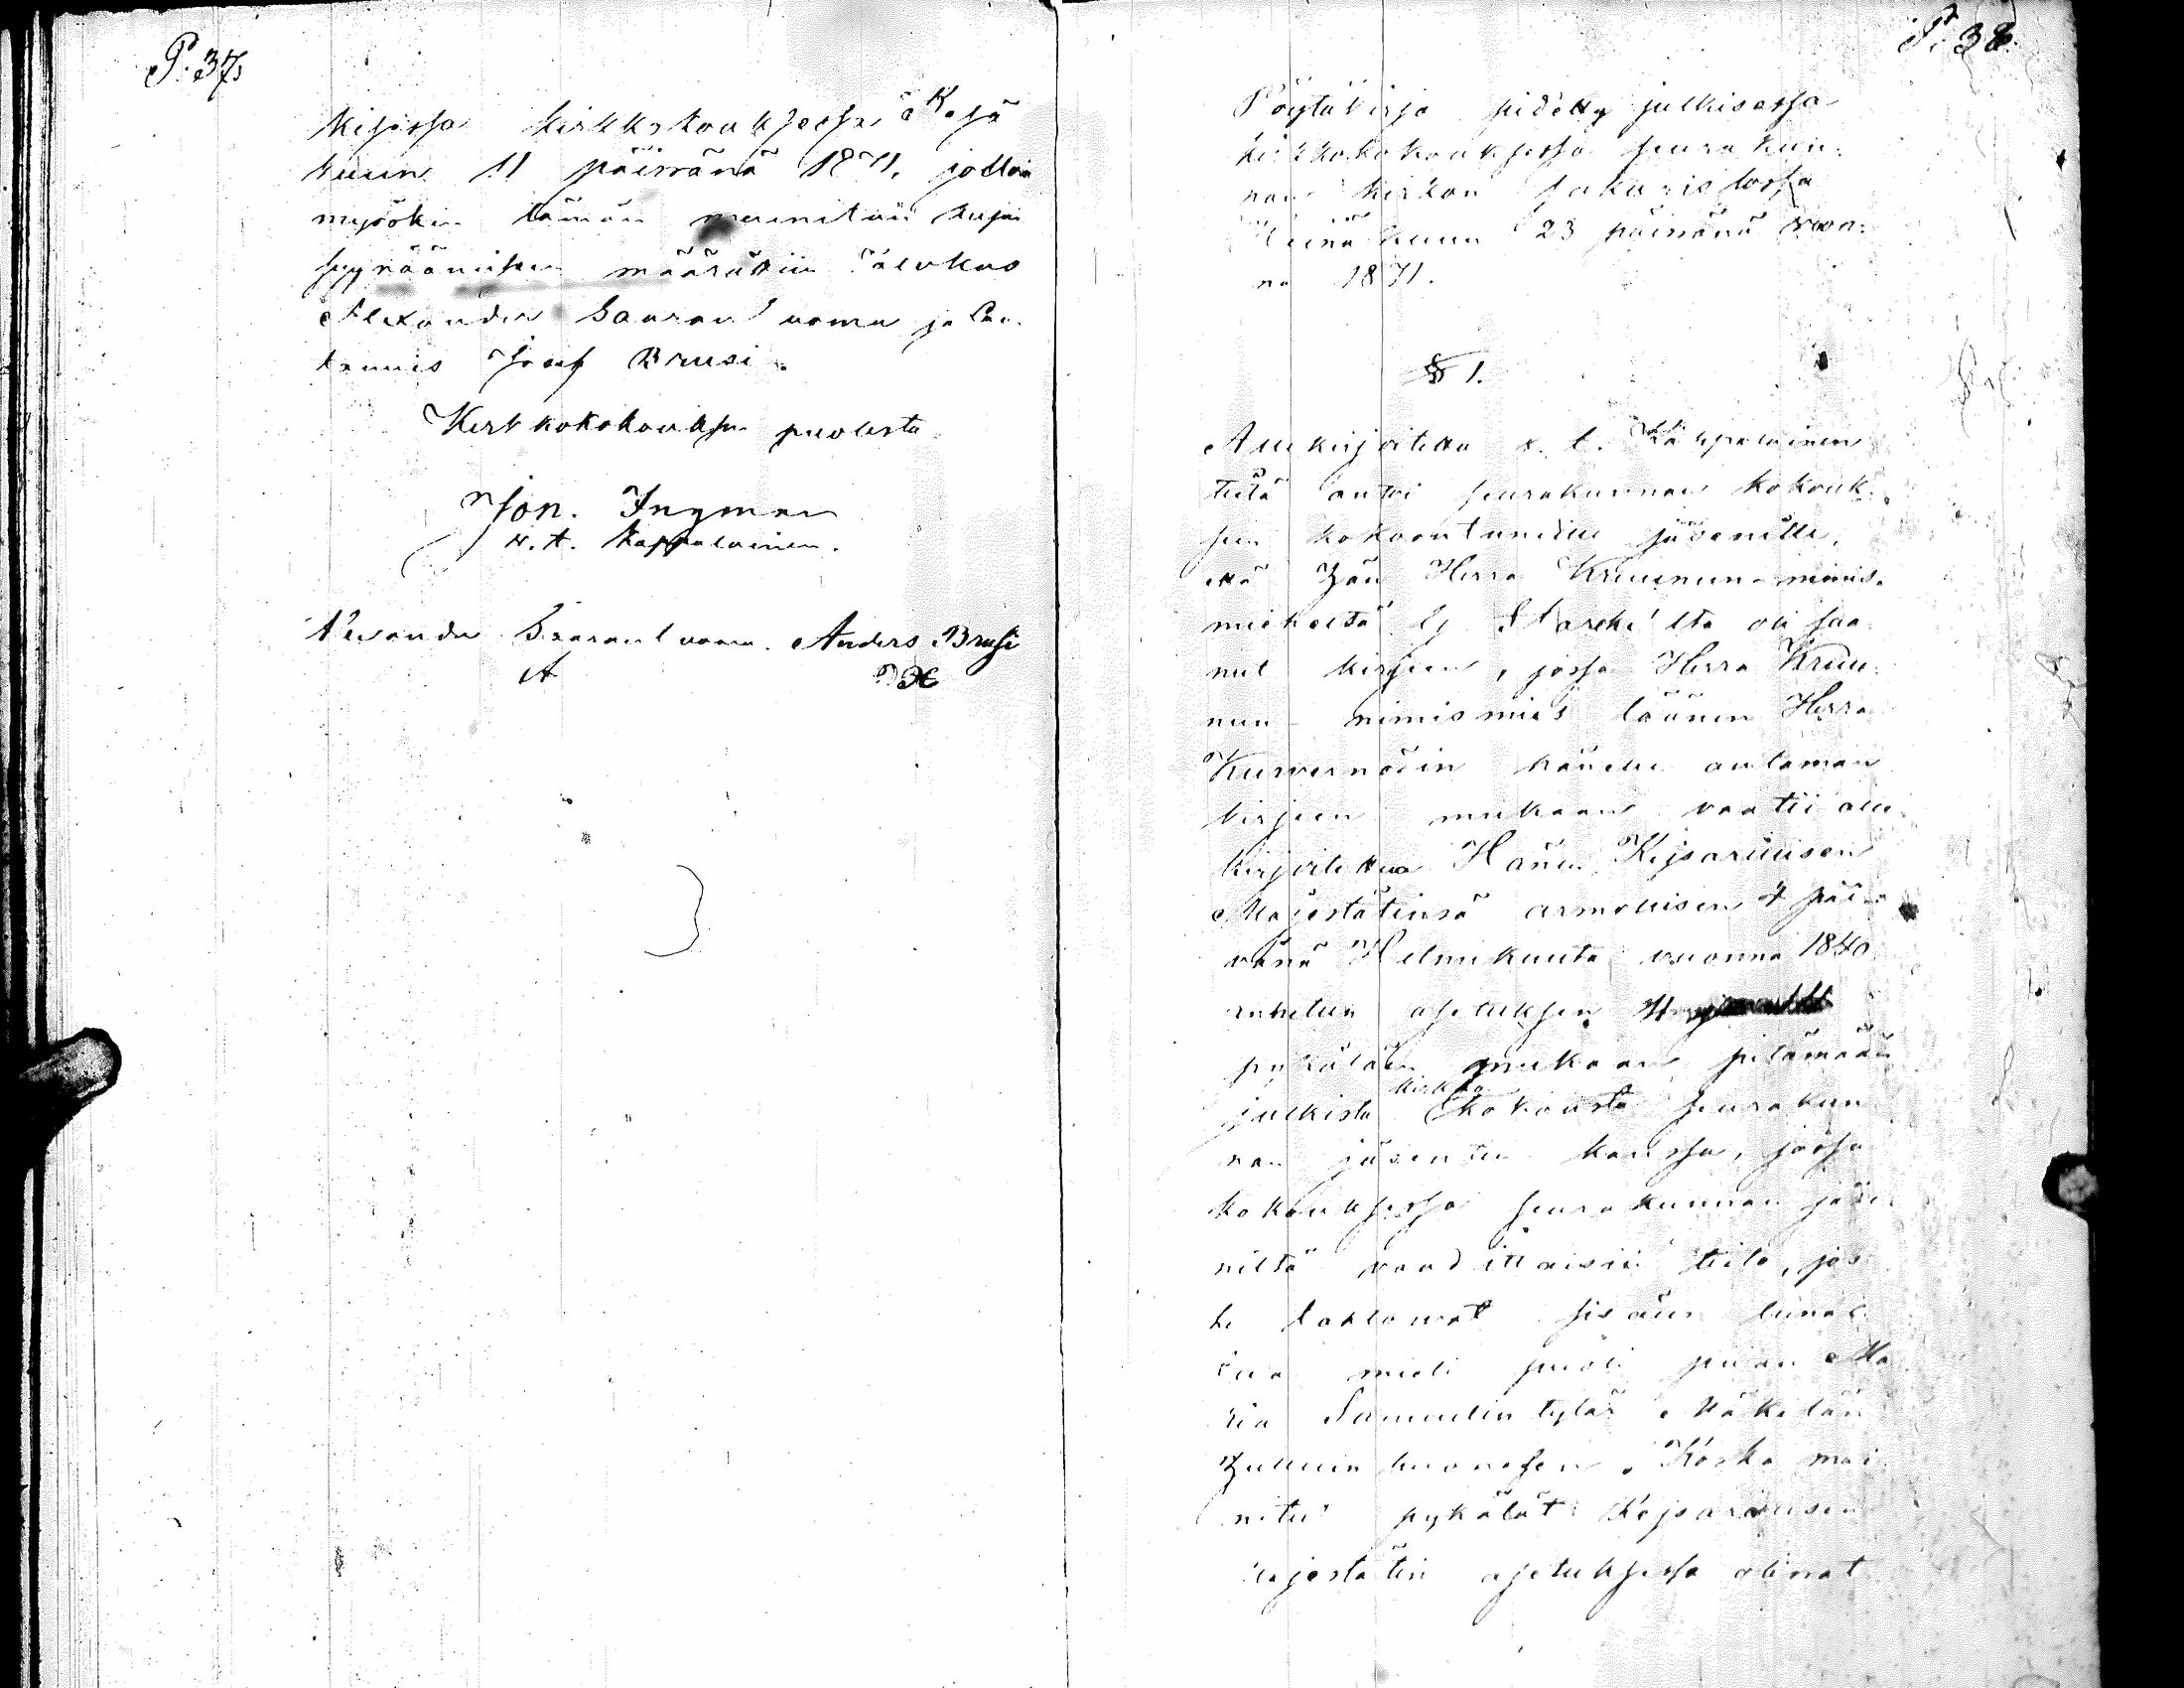 P. 37,
kisissa kirkkokouksessa Kesä
kuun 11 päivänä 1871, jolloin
myöskin tämän mainitun
syynäämisen määrättiin Talokas
Alexander Saaranluoma ja Lau-
tamies Josef Brusi.
Kirkkokokouksen puolesta
Jon. Ingman
w. t. Kappalainen.
Alexander Saaranluoma. Anders Brusi
P. 38.
Pöytäkirja pidetty julkisessa
kirkkokokouksessa seurakun-
nan kirkon sakaristossa
Heinäkuun 23 päivänä vuon-
na 1871.
§ 1.
Allekirjoitettu v. t. Kappalainen
tietä antoi seurakunnan kokouk-
sen kokoontuneille jäsenille,
että hän Herra Kruunun-nimis-
mieheltä ltä oli saa-
nut kirjeen, jossa Herra Kruu-
nun nimismies läänin Herra
Kuvernöörin hänelle antaman
kirjeen mukaan vaatii alle-
kirjoitettua Hänen Keisarillisen
Majestätinsä armollisen 4 päi-
vänä Helmikuuta vuonna 1840
annetun asetuksen
pykälän mukaan pitämään
julkista kirkko kokousta seurakun
nan jäsenten kanssa, jossa
kokouksessa seurakunnan jäse-
niltä vaadittaisiin tieto, jos
he tahtowat sisään lunas-
taa mieli puoli piian Ma
ria Samuelin tytär Mäkelän
hulluin huoneseen. Koska mai
nitut pykälät Keisarillisen
Majestätin asetuksessa olivat